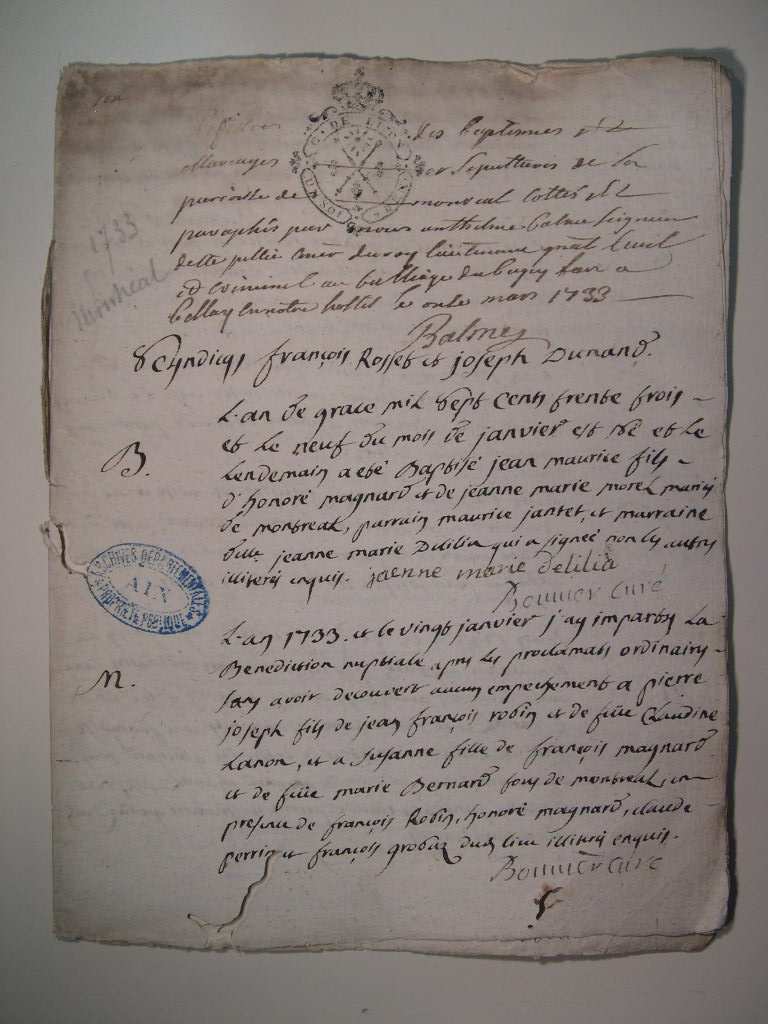 Registres des baptesmes et
Mariages et sepultures de la
paroisse de montreal cottés et
paraphés par nous anthelme balme seigneur
de ste jullie coner du roy lieutenant gnal civil
et criminel au balliage du bugey fait a
bellay en notre hostel le onze mars 1733
Balme
1733
Montréal
Scyndicqs françois Rosset et joseph Dunand.
L'an de grace mil sept cents trente trois
et le neuf du mois de janvier est né et le
B.
lendemain a eté Baptisé jean maurice fils
d'honoré magnard et de jeanne marie morel mariés
de montreal, parrain maurice jantet, et marraine
dlle jeanne marie Delilia qui a signée non les autres
illiterés enquis. jaenne marie delilia
Bonnier curé
ARCHIVES DEPARTEMENTALES
AIN
PROPRIETE PUBLIQUE
L'an 1733. et le vingt janvier j'ay imparty La
Benediction nuptiale apres les proclamats ordinaires
M.
sans avoir decouvert aucun empechement a pierre
joseph fils de jean françois robin et de füe Claudine
Lanon, et a Susanne fille de françois magnard
et de füe marie Bernard tous de montreal, en
presence de françois Robin, honoré magnard, claude
perrin et françois grobaz dud. lieu illiterés enquis.
Bonnier curé